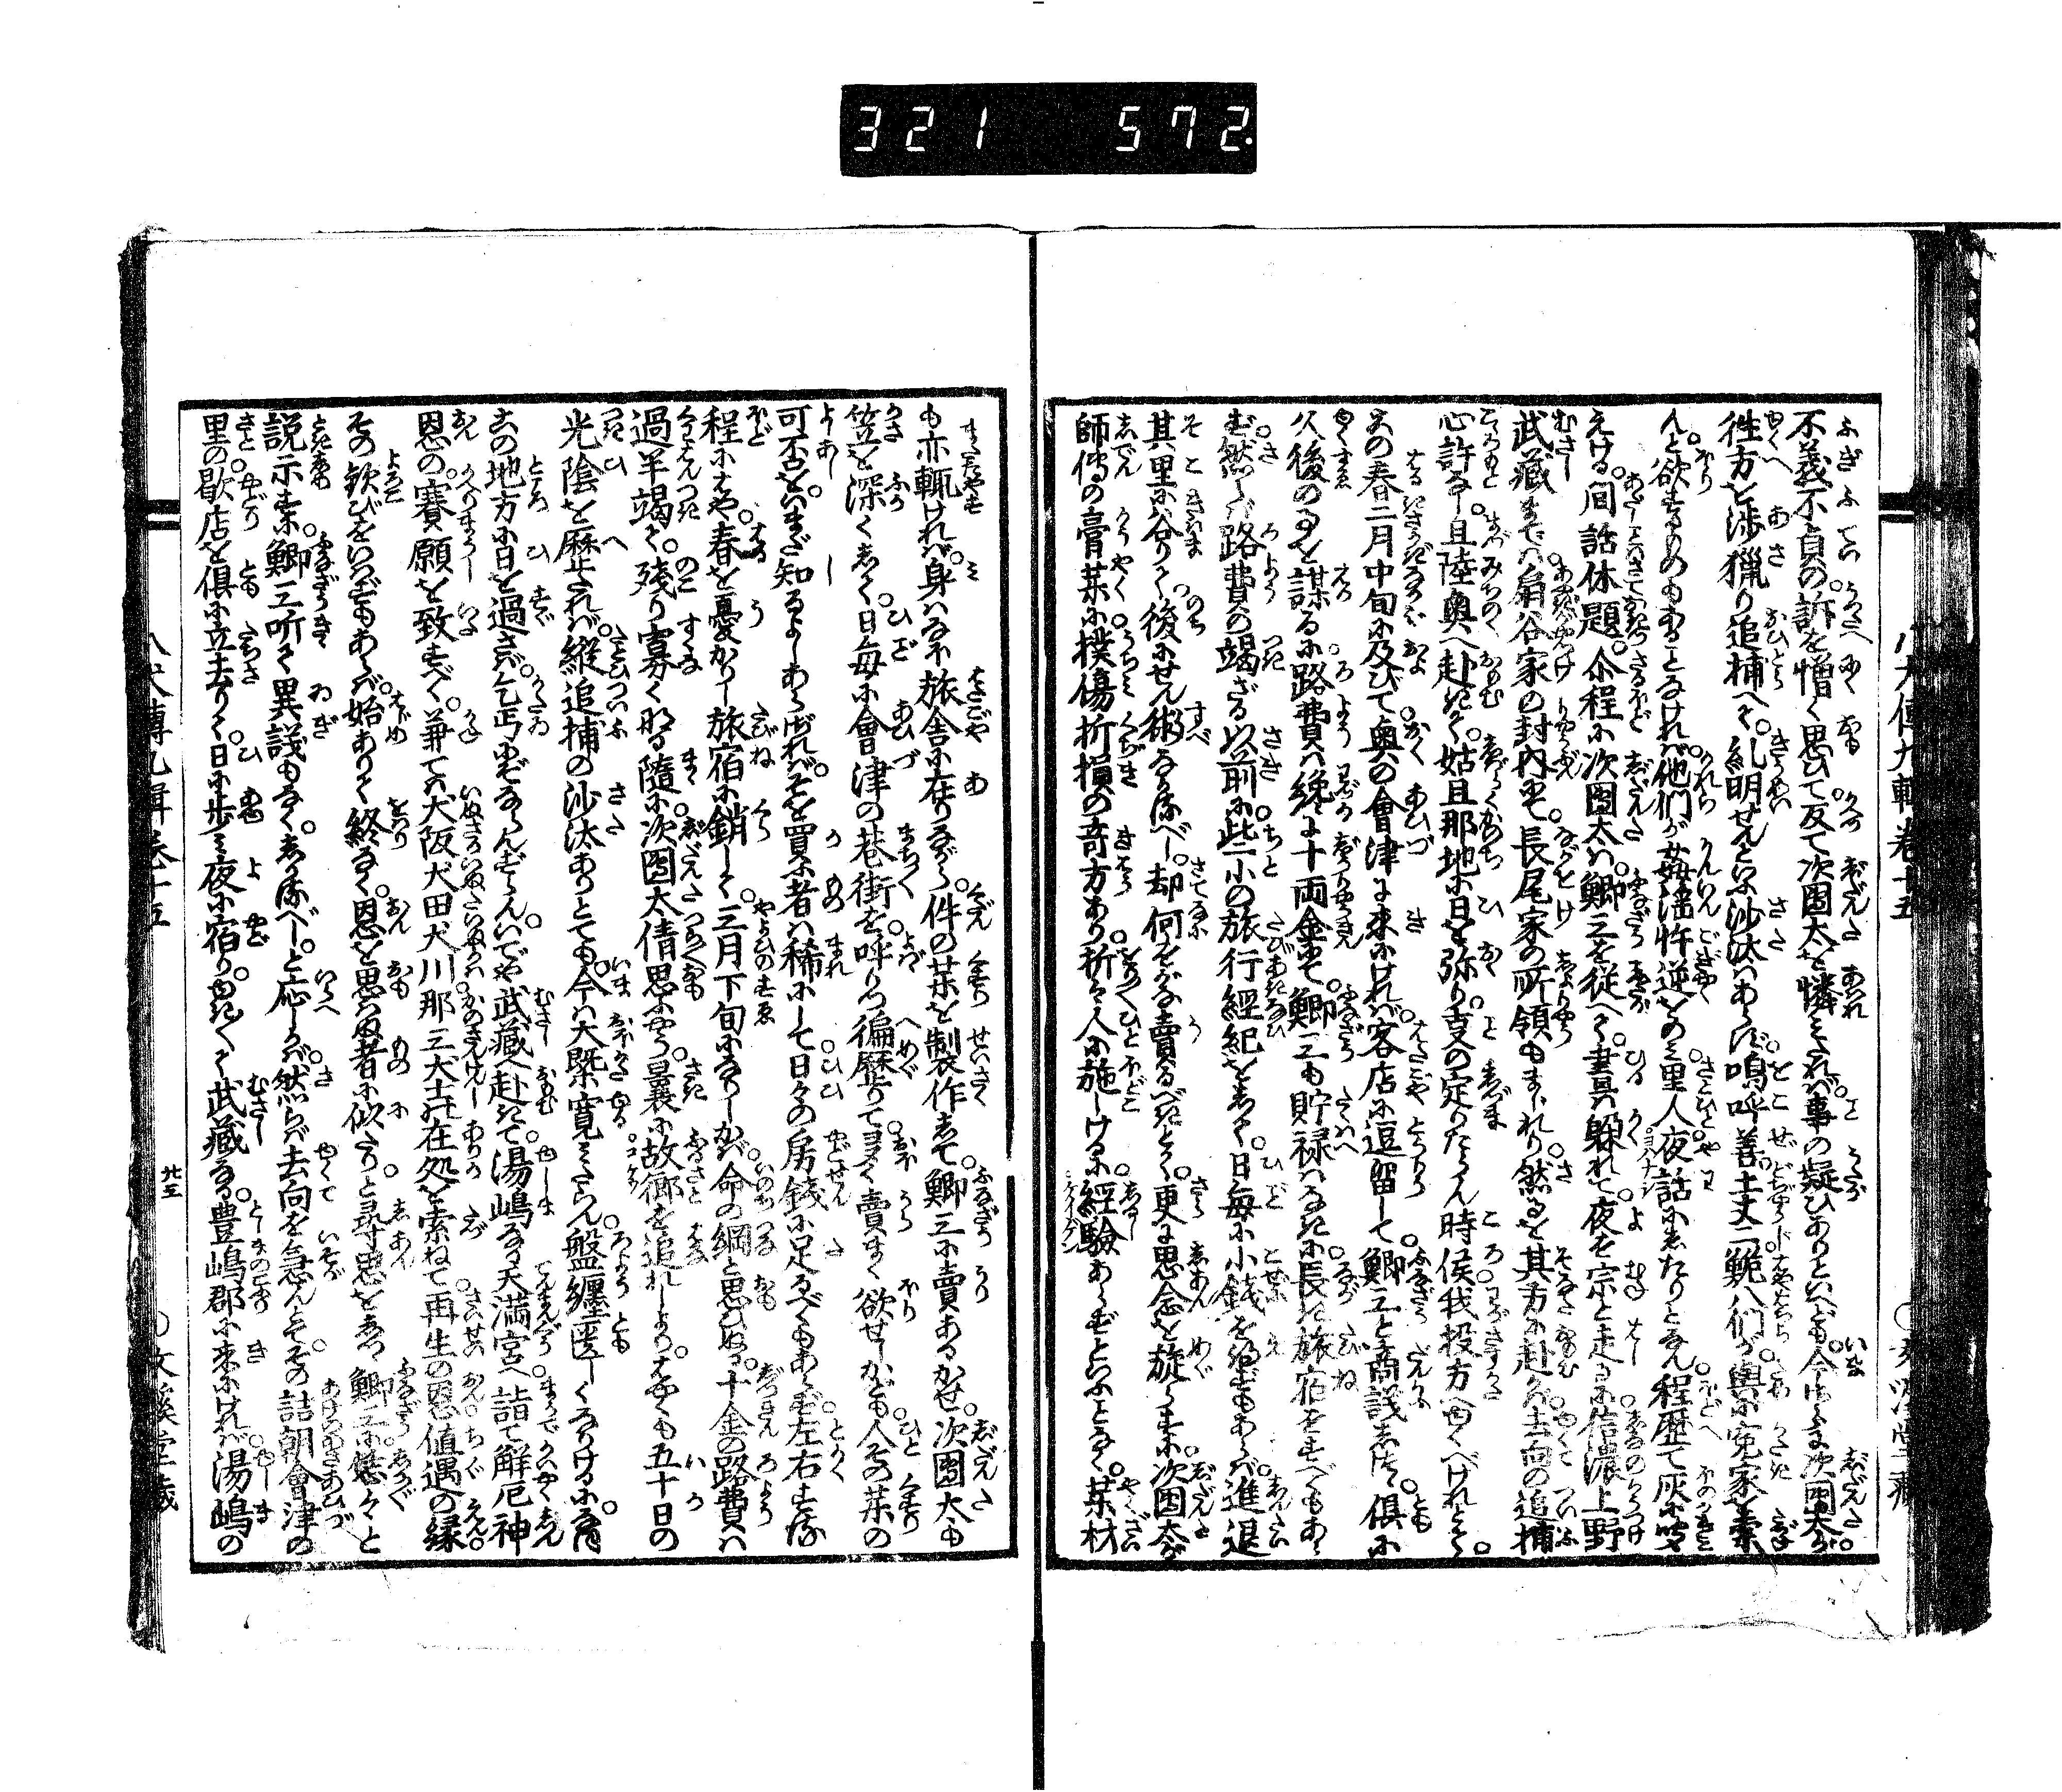 321 572.
八犬傳九輯巻十五
不義不貞の訴を憎く思ひて反て次團太を憐みされバ事の疑ひありといへども今はしも次團太が
徃方を渉獵り追捕へて糺明せんといふ沙汰ハあらず嗚呼善士丈二鯢八們が與に寃家を索
んと欲するものもあることなけれバ他們が姦淫忤逆をのミ里人夜話にしたりとなん程歴て灰に聞
えける間話休題尒程に次團太ハ鯽三を従へて晝ハ躱れて夜を宗と走るに信濃上野
武藏までハ扇谷家の封内にて長尾家の所領もまじれり然るを其方に赴かバ去向の追捕
心許なし且陸奥へ赴きて姑且那地に日を弥り叓の定りたらん時侯我投方へゆくべけれとて
この春二月中旬に及びて奥の會津に来にけれバ客店に逗留して鯽三と商議しつゝ倶に
久後の事を謀るに路費ハ纔に十両金にて鯽三も貯禄ハなきに長き旅宿をすべくもあら
ず然らバ路費の竭ざる以前に些小の旅行經紀をして日毎に小錢を得ずもあらバ進退
其里に谷りて後にせん術なかるべし却何をがな賣るべきとて更に思念を旋らすに次團太が
師傳の膏藥に撲傷折損の奇方あり折々人に施しけるに經驗あらずといふことなく藥材
も亦輙けれバ身ハなほ旅舎に在りながら件の藥を製作して鯽三に賣あるかせ次團太も
笠を深くして日毎に會津の巷街を呼りつゝ徧歴りて多く賣まく欲せしかども人その藥の
可否をいまだ知るよしあらざれバそを買ふ者ハ稀にして日々の房錢に足るべくもあらず左右する
程にはや春を憂かりし旅宿に銷して三月下旬になりしかバ命の綱と思ひぬる十金の路費ハ
過半竭て残り寡くなる隨に次團太倩思ふやう曩に故郷を追れしよりはやくも五十日の
光陰を歴たれバ縦追捕の沙汰ありとても今ハ大槩寛ミたらん盤纏匱しくなりけるに尚
この地方に日を過さバ乞丐にぞなりんずらんいでや武藏へ赴きて湯嶋なる天満宮へ詣て解厄神
恩の賽願を致すべく兼てハ犬阪犬田犬川那三犬士の在処を索ねて再生の恩値遇の縁
その歓びをいはずもあらバ始ありて終なく恩を思はぬ者に似たりと尋思をしつゝ鯽三に恁々と
説示すに鯽三听て異議もなくしかるべしと応しかバ然らバ去向を急んとてその詰朝會津の
里の歇店を倶に立去りて日に歩ミ夜に宿りゆき〳〵て武藏なる豊嶋郡に来にけれバ湯嶋の
八犬傳九輯巻十五
廿五
文溪堂藏